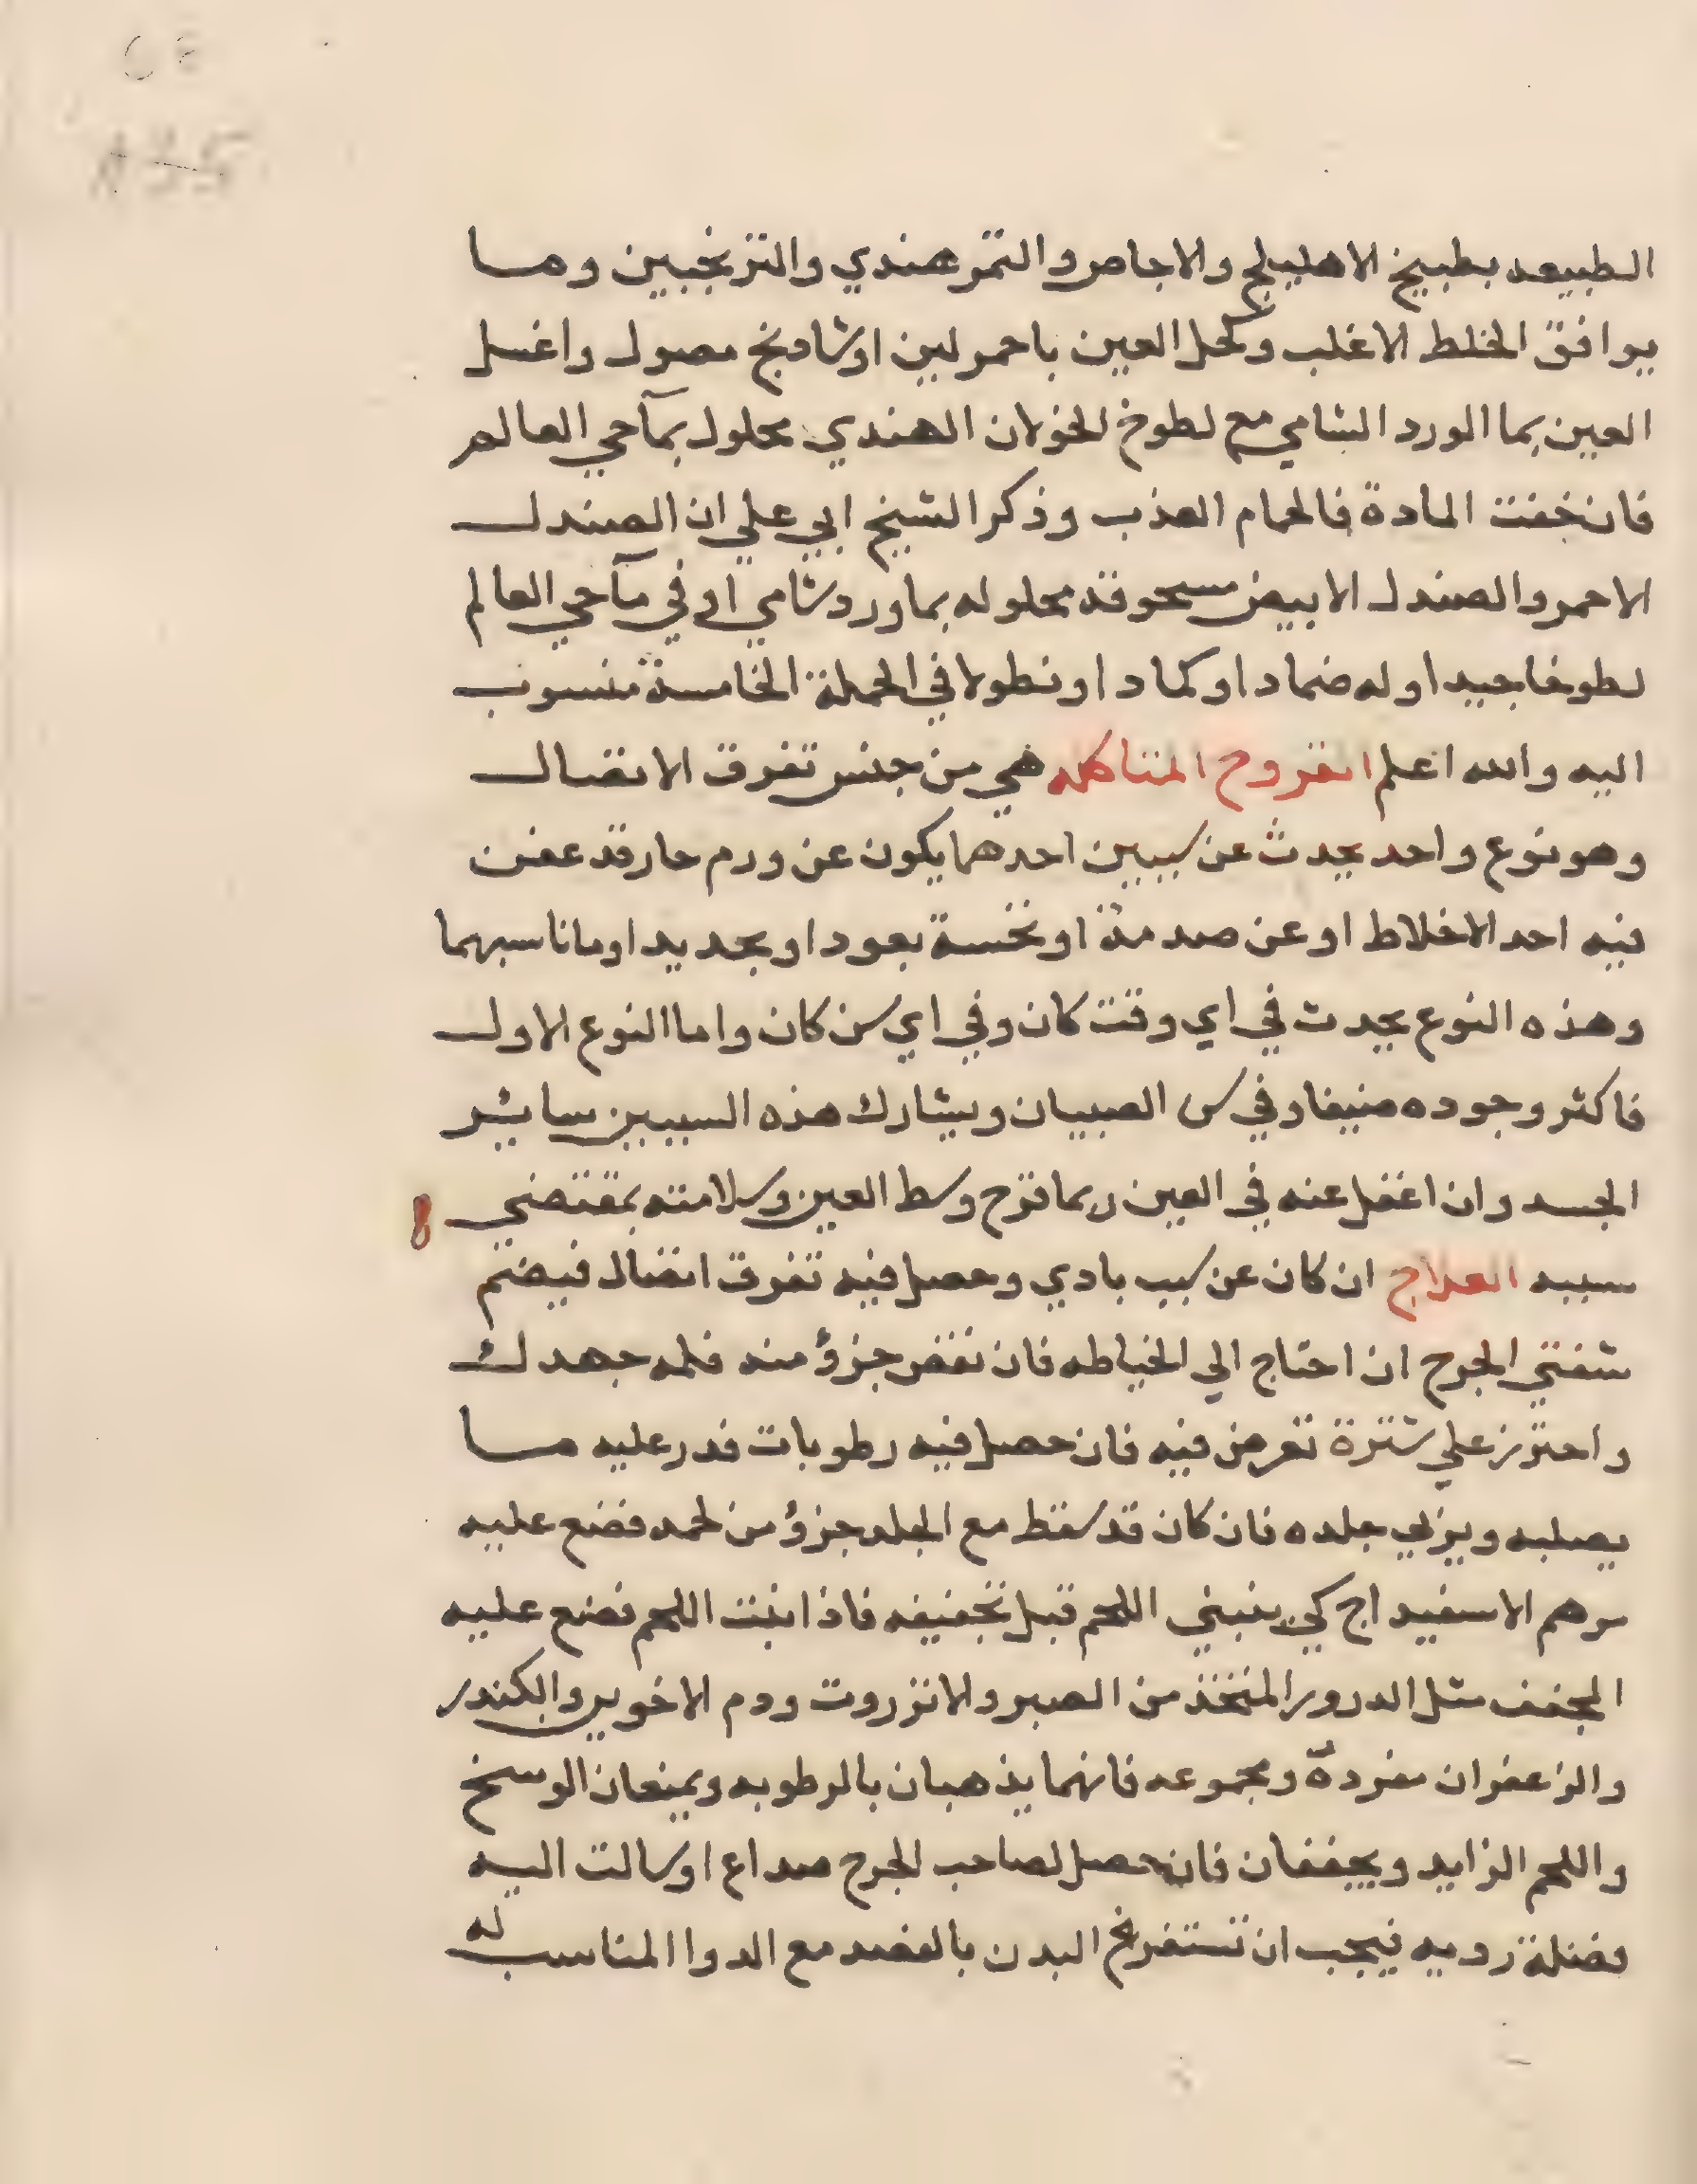 الطبيعه بطبيخ الاهليلج والاجاص والتمر هندي والترنجبين وما
يوافق الخلط الاغلب وكحل العين باحمر لين او شادنج مصول واغسل
العين بما الورد الشامي مع لطوخ الخولان الهندي محلول بمآ حي العالم
فان خفت المادة فالحمام العذب وذكر الشيخ ابي علي ان الصندل
الاحمر والصندل الابيض مسحوقه محلوله بماورد شامي او في مآ حي العالم
لطوخا جيدا وله ضمادا وكمادا ونطولا في الجملة الخامسة منسوب
اليه والله اعلم القروح المتاكله هي من جنس تفرق الاتصال
وهو نوع واحد يحدث عن سببين احدهما يكون عن ورم حار قد عفن
فيه احد الاخلاط او عن صدمة او نخسة بعود او بحديد او ما ناسبهما
وهذه النوع يحدث في اي وقت كان وفي اي سن كان واما النوع الاول
فاكثر وجوده صيفا وفي سن الصبيان ويشارك هذه السببين سائر
الجسد وان اغفل عنه في العين ربما قرح وسط العين وسلامته بمقتضي
سببه العلاج ان كان عن سبب بادي وحصل فيه تفرق اتصال فيضم
شفتي الجرح ان احتاج الي الخياطه فان نقص جزؤ منه فلمه جهدك
واحترز علي شترة تعرض فيه فان حصل فيه رطوبات فدر عليه ما
يصلبه ويربي جلده فان كان قد سقط مع الجلد جزؤ من لحمه فضع عليه
مرهم الاسفيداج كي ينبني اللحم قبل تجفيفه فاذا انبت اللحم فضع عليه
المجفف مثل الدرور المتخذ من الصبر والانزروت ودم الاخوين والكندر
والزعفران مفردة ومجموعه فانهما يذهبان بالرطوبه ويمنعان الوسخ
واللحم الزايد ويجففان فان حصل لصاحب الجرح صداع او سالت اليه
فضلة رديه فيجب ان تستفرغ البدن بالفصد مع الدوا المناسب له